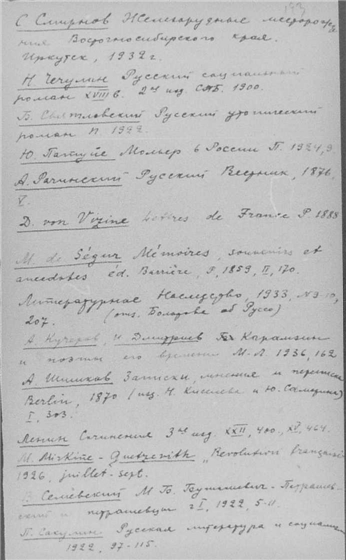 С Смирнов Железорудные месторож-
ния Восточносибирского края.
Иркутск, 1932 г.
Н. Чечулин Русский социальный
роман XVIII в. 2ое изд СПБ. 1900.
Б. Святловский Русский утопический
роман П 1922.
Ю. Патуйе Мольер в России П. 1924, 9.
А. Рачинский Русский Вестник, 1876,
8.
D. von Vizine Lettres de France P. 1888
M. de Ségur Mémoires, souvenirs et
anecdotes éd. Barrière, P. 1859, II, 170.
Литературное Наследство, 1933, № 9-10,
207. (отз. Болотова об Руссо)
А. Кучеров, И. Дмитриев Карамзин
и поэты его времени М.-Л. 1936, 162
А. Шишков Записки, мнения и переписка
Berlin, 1870 (изд Н. Киселева и Ю. Самарина)
I, 303.
Ленин Сочинения 3ье изд. XXII, 400, XV, 464.
M. Mirkine-Guetzevith "Révolution française
1926, juillet-sept.
В Семевский М В. Буташевич-Петрашев-
ский и петрашевцы ч I, 1922, 5-11.
П. Сакулин Русская литература и социализм
1922, 97-115.